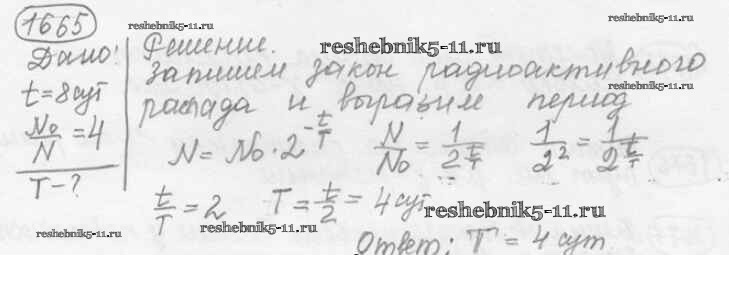 1665
reshebnik5-11.ru
reshebnik5-11.ru
Дано: Решение. reshebnik5-11.ru
запишем закон радиоактивного
t = 8 сут распада и выразим период reshebnik5-11.ru
N₀/N = 4 N = N₀ · 2^(-t/T) N/N₀ = 1/2^(t/T) 1/2² = 1/2^(t/T)
T - ?
t/T = 2 T = t/2 = 4 сут reshebnik5-11.ru
reshebnik5-11.ru reshebnik5-11.ru
Ответ: T = 4 сут.